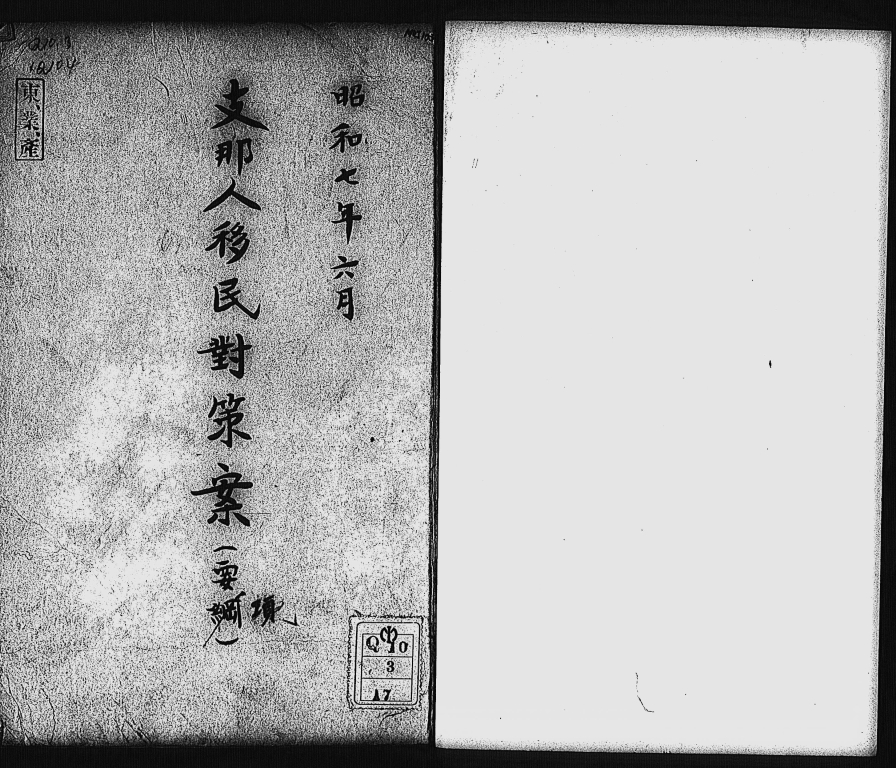 昭和七年六月
支那人移民對策案(要綱)
項
東、業、産
Q 10
3
17